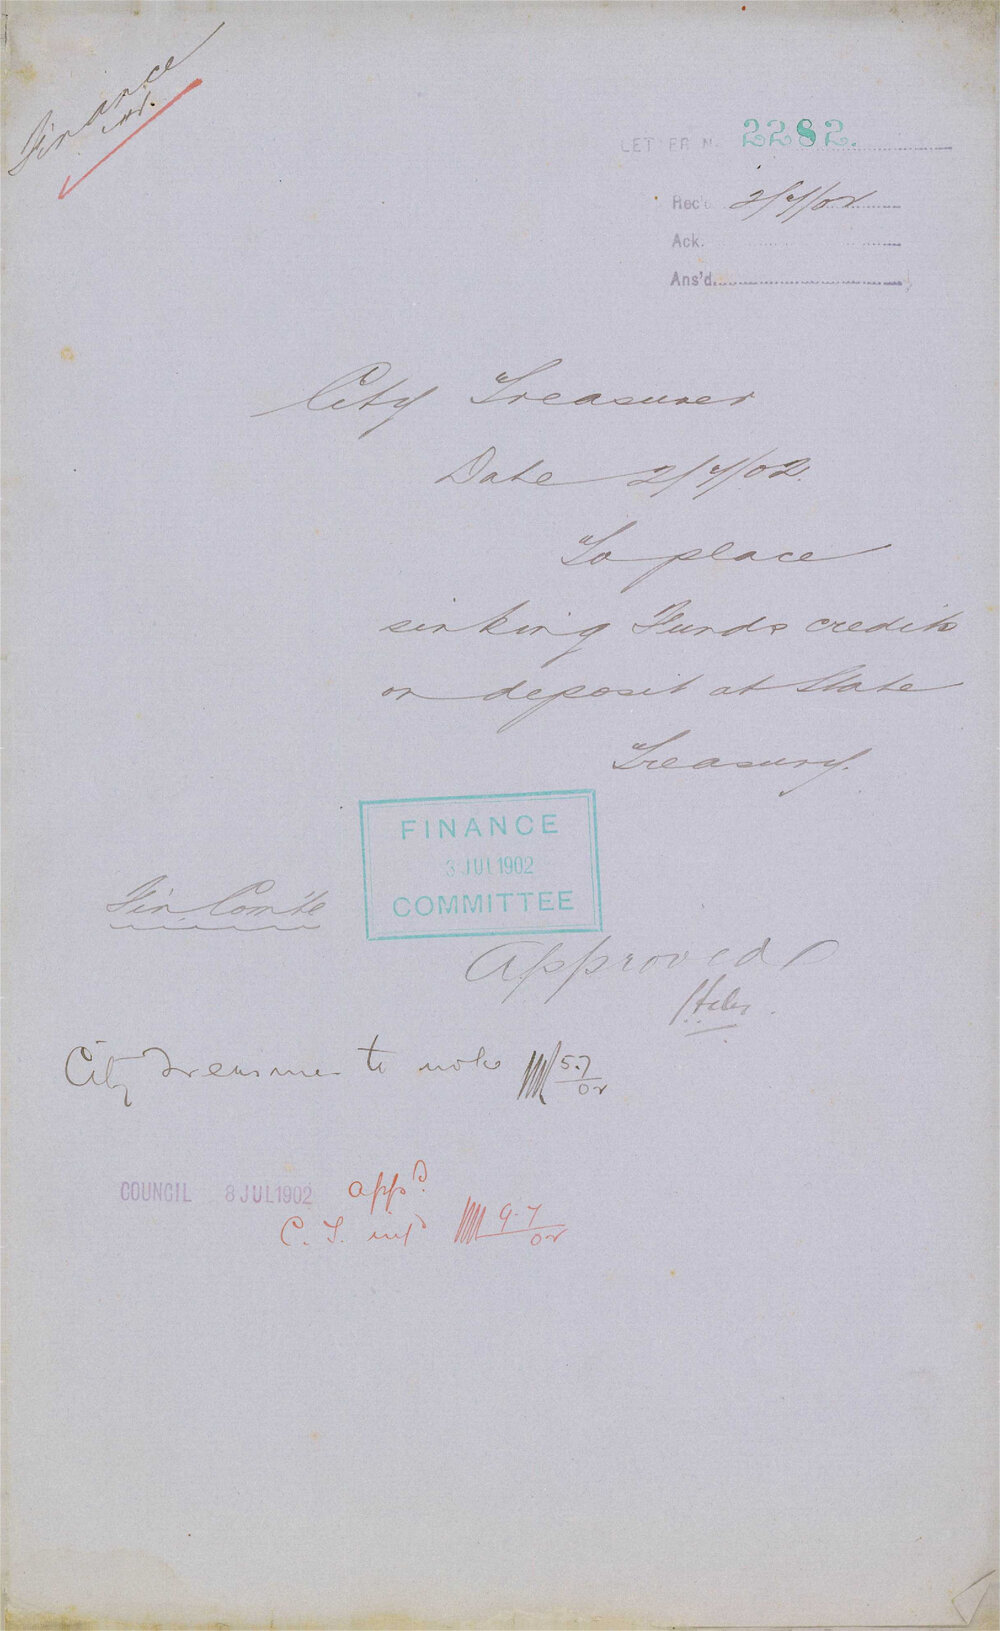 Finance
LETTER No. 2282.
Rec'd 2/7/02
Ack.
Ans'd.
City Treasurer
Date 2/7/02.
To place
sinking Funds credits
on deposit at State
Treasury.
FINANCE
3 JUL 1902
COMMITTEE
Fin Com'te
Approved
City Treasurer to note 5.7/02
COUNCIL 8 JUL 1902 appd.
C. T. infd 9.7/02